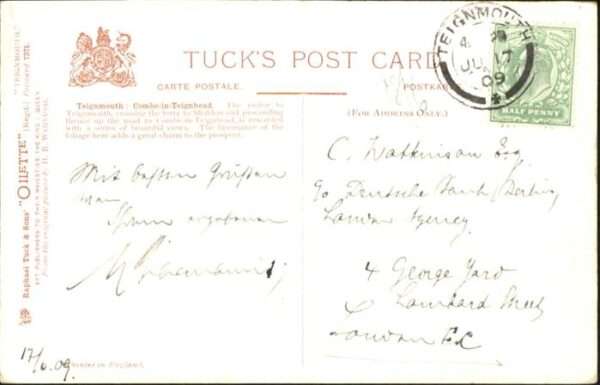 TUCK'S POST CARD
CARTE POSTALE.
POSTKAR
(FOR ADDRESS ONLY.)
Teignmouth: Combe-in-Teignhead. The visitor to
Teignmouth, crossing the ferry to Shaldon and proceeding
thence up the road to Combe-in-Teignhead, is rewarded
with a series of beautiful views. The luxuriance of the
foliage here adds a great charm to the prospect.
Mit besten Grüssen
17/6.09
PRINTED IN ENGLAND.
Raphael Tuck & Sons' "OILETTE" (Regd.)
ART PUBLISHERS TO THEIR MAJESTIES THE KING & QUEEN
TEIGNMOUTH
JU 17
09
HALF PENNY
C. Watkinson Esq
c/o Deutsche Bank (Berlin)
London Agency.
4 George Yard
Lombard Street
London E.C